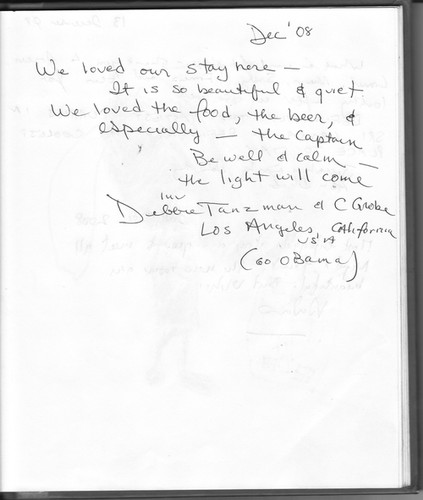 Dec '08
We loved our stay here —
It is so beautiful & quiet
We loved the food, the beer, &
especially — the Captain
Be well & calm —
the light will come
Debbie Tanzman & C Grobe
Los Angeles, California
USA
(Go Obama)